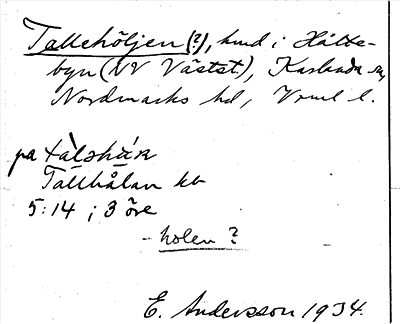 Tallehöljen (?), hmd i Hålte-
byn (NV Västst.), Karlanda sn,
Nordmarks hd, Vrml l.
pa
Tallhålan kb
5:14 i 3 öre
-holen ?
E. Andersson 1934.